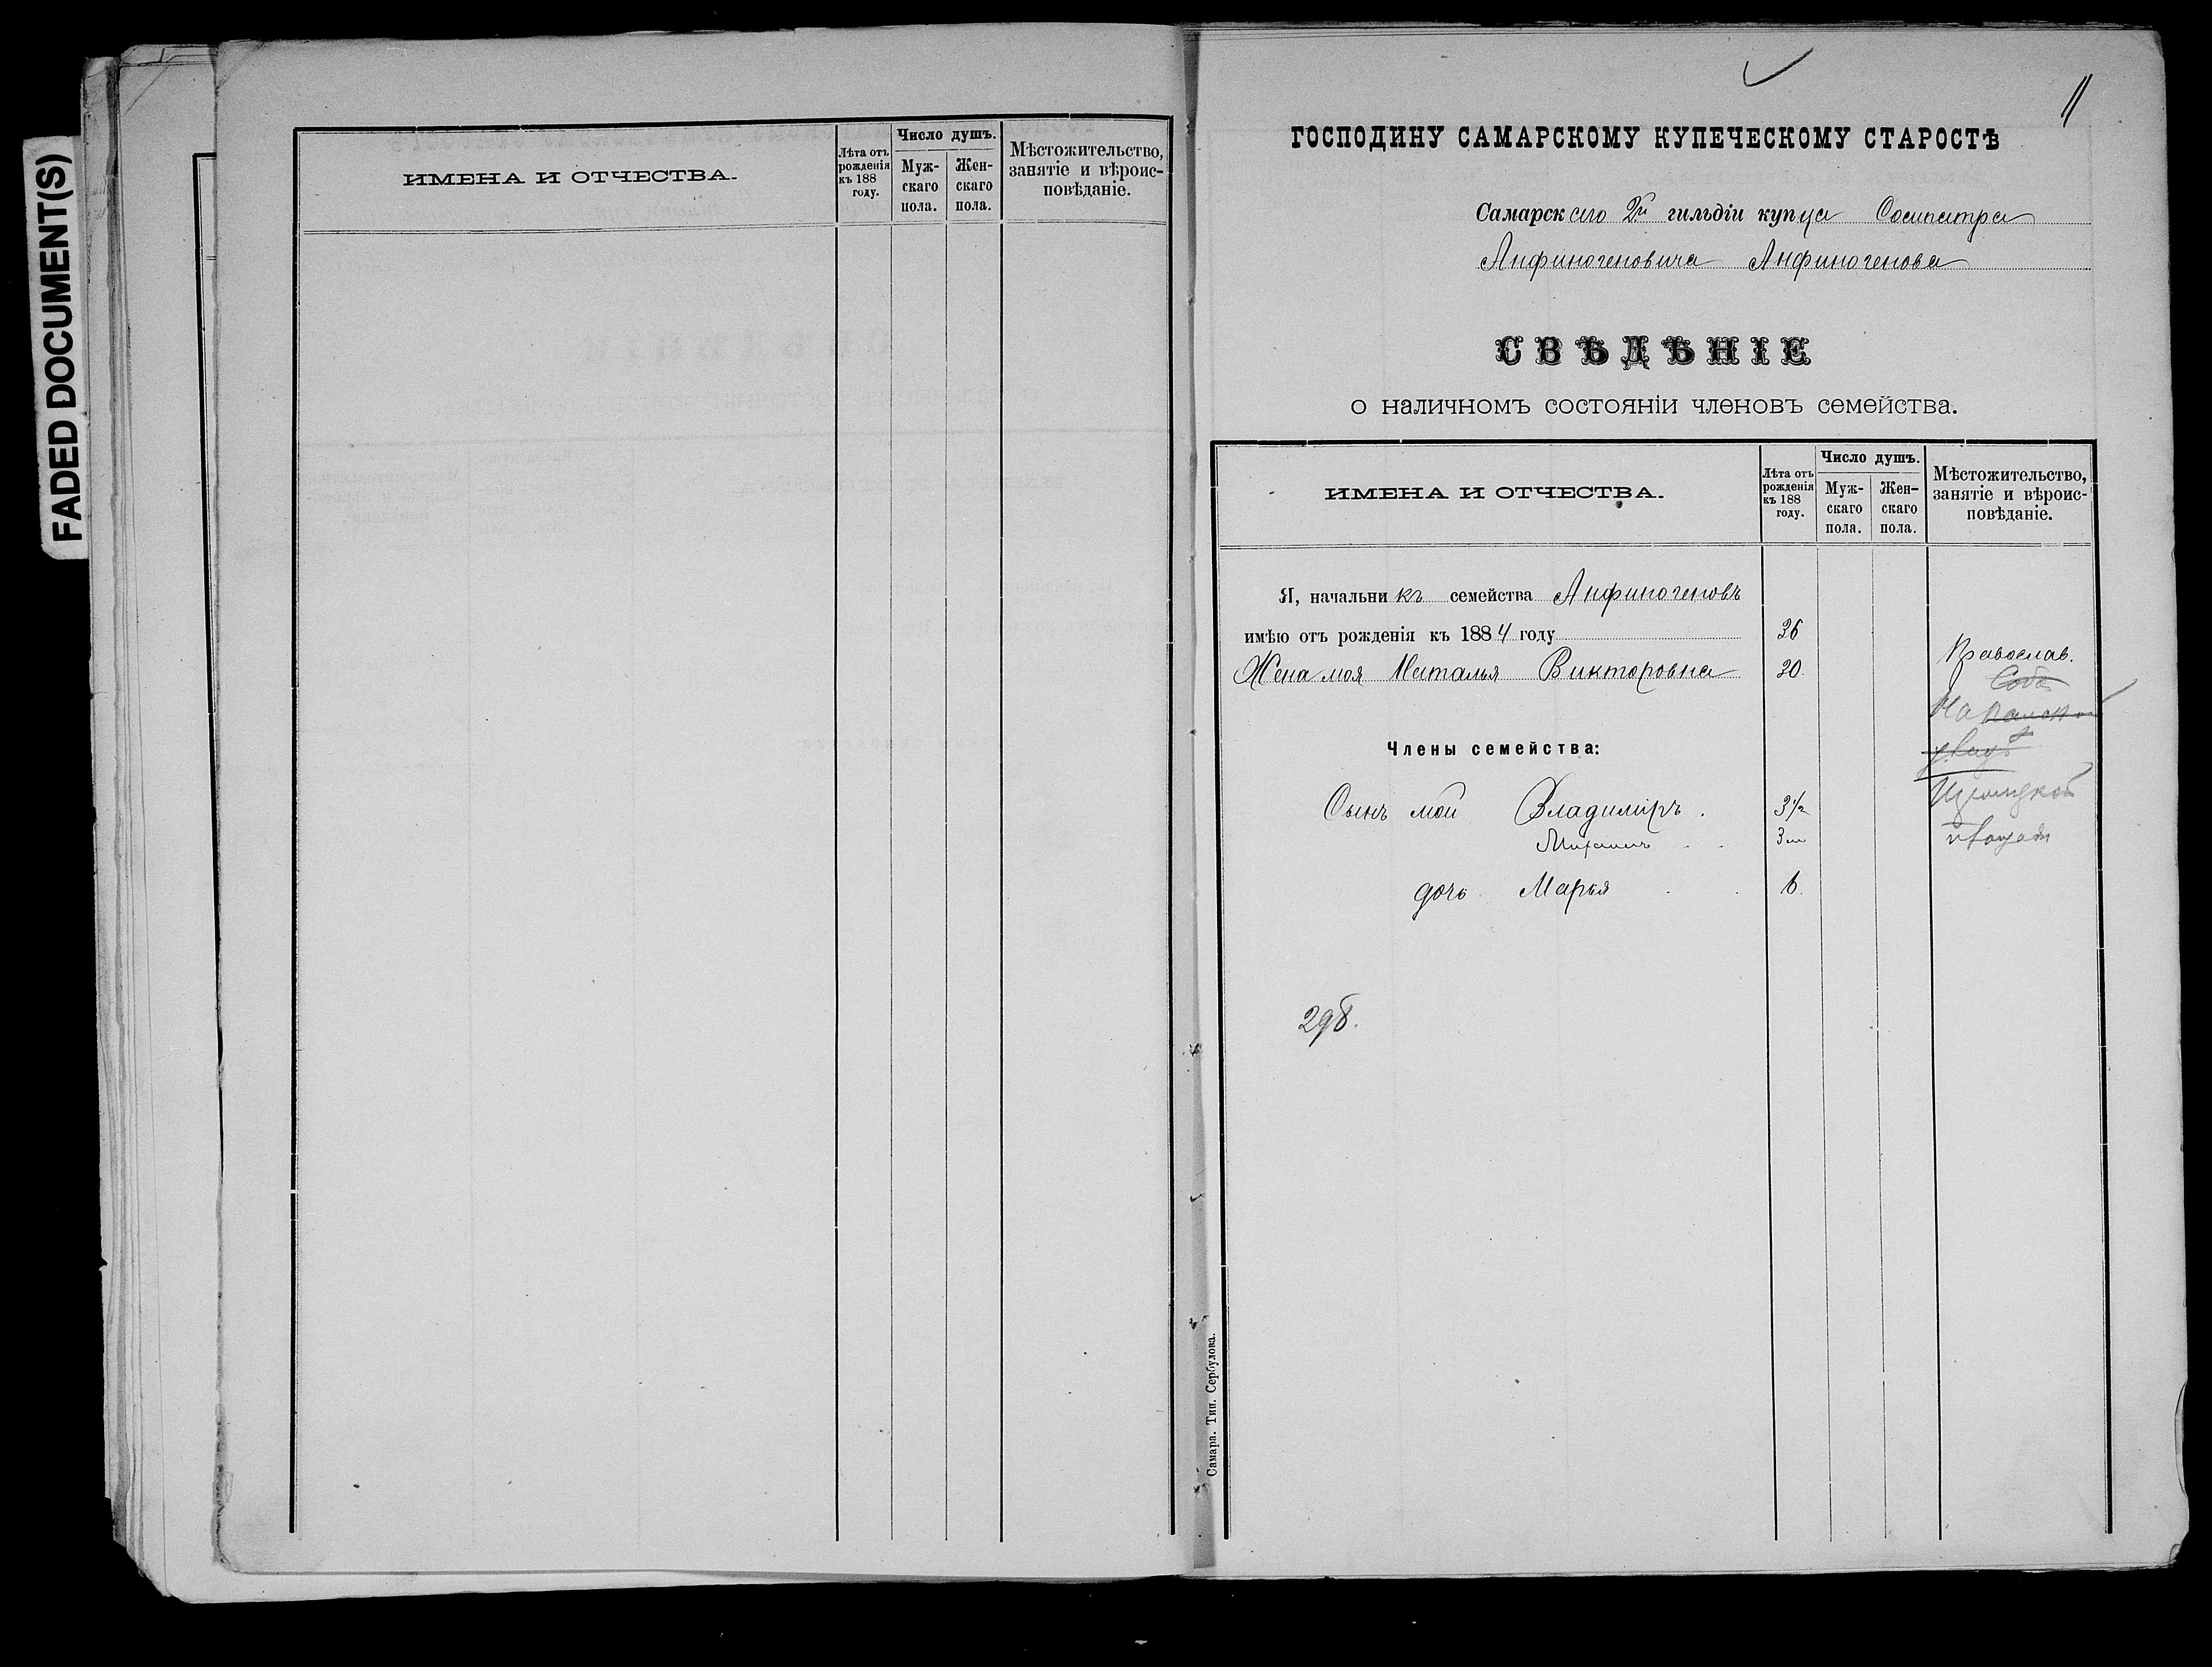 FADED DOCUMENT(S)
ИМЕНА И ОТЧЕСТВА.
Лѣта отъ рожденія къ 188 году.
Число душъ.
Муж-скаго пола.
Жен-скаго пола.
Мѣстожительство, занятіе и вѣроис-повѣданіе.
11
ГОСПОДИНУ САМАРСКОМУ КУПЕЧЕСКОМУ СТАРОСТѢ
Самарскаго 2й гильдіи купца Сосипатра
Анфиногеновича Анфиногенова
СВѢДѢНІЕ
о наличномъ состояніи членовъ семейства.
ИМЕНА И ОТЧЕСТВА.
Лѣта отъ рожденія къ 188 году.
Число душъ.
Муж-скаго пола.
Жен-скаго пола.
Мѣстожительство, занятіе и вѣроис-повѣданіе.
Я, начальникъ семейства Анфиногеновъ
имѣю отъ рожденія къ 1884 году 26
Православ.
Жена моя Наталья Викторовна 20
На
Члены семейства:
Сынъ мой Владиміръ . 3½
Михаилъ . . 3 м
дочь Марья . . 6.
298.
Самара. Тип. Сербулова.